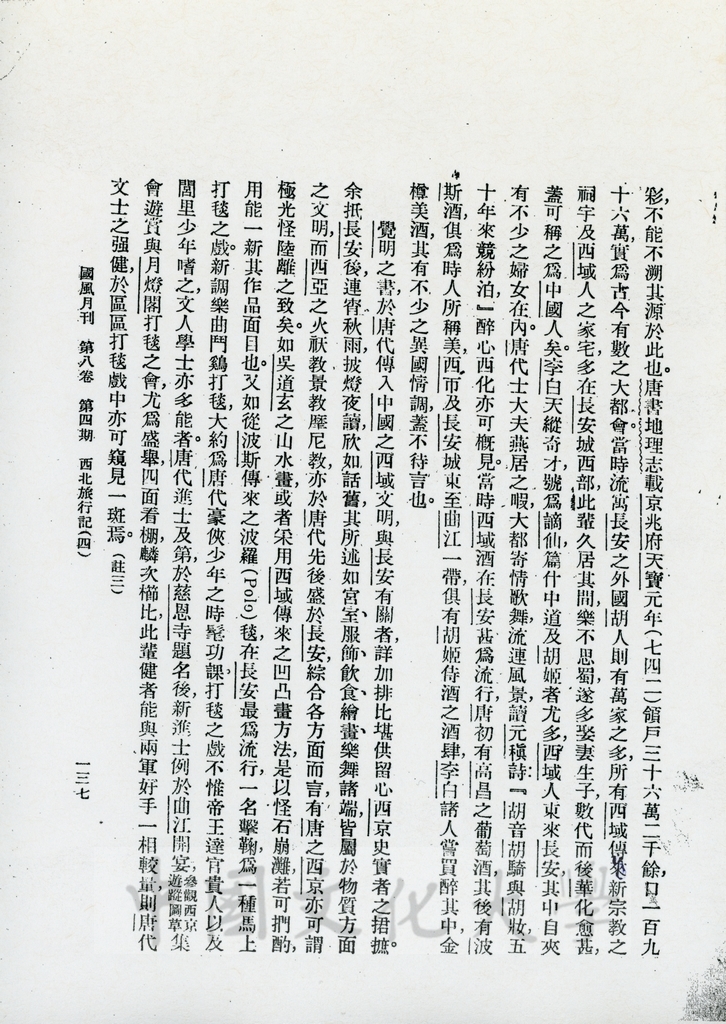 彩,不能不溯其源於此也。唐書地理志載京兆府天寶元年(七四二)領戶三十六萬二千餘,口一百九
十六萬,實爲古今有數之大都會。當時流寓長安之外國胡人,則有萬家之多,所有西域傳來新宗教之
祠宇,及西域人之家宅,多在長安城西部,此輩久居其間,樂不思蜀,遂多娶妻生子,數代而後,華化愈甚,
蓋可稱之爲中國人矣。李白天縱奇才,號爲謫仙,篇什中道及胡姬者尤多,西域人東來長安,其中自夾
有不少之婦女在內。唐代士大夫燕居之暇,大都寄情歌舞,流連風景,讀元稹詩:『胡音胡騎與胡妝,五
十年來競紛泊』醉心西化,亦可概見。當時西域酒在長安甚爲流行,唐初有高昌之葡萄酒,其後有波
斯酒,俱爲時人所稱美,西市及長安城東至曲江一帶,俱有胡姬侍酒之酒肆,李白諸人嘗買醉其中,金
樽美酒,其有不少之異國情調,蓋不待言也。
覺明之書,於唐代傳入中國之西域文明,與長安有關者,詳加排比,堪供留心西京史實者之捃摭。
余抵長安後,連宵秋雨,披燈夜讀,欣如話舊,其所述如宮室、服飾、飲食、繪畫、樂舞諸端,皆屬於物質方面
之文明,而西亞之火祆教、景教、摩尼教,亦於唐代先後盛於長安,綜合各方面而言,有唐之西京,亦可謂
極光怪陸離之致矣。如吳道玄之山水畫,或者采用西域傳來之凹凸畫方法,是以怪石崩灘,若可捫酌,
用能一新其作品面目也。又如從波斯傳來之波羅(Polo)毬,在長安最爲流行,一名擊鞠,爲一種馬上
打毬之戲。新調樂曲,鬥鷄打毬,大約爲唐代豪俠少年之時髦功課,打毬之戲,不惟帝王達官貴人,以及
閭里少年嗜之,文人學士亦多能者。唐代進士及第,於慈恩寺題名後,新進士例於曲江開宴,參觀西京遊蹤圖草集
會遊賞,與月燈閣打毬之會,尤爲盛舉,四面看棚,麟次櫛比,此輩健者能與兩軍好手一相較量,則唐代
文士之强健,於區區打毬戲中,亦可窺見一斑焉。(註三)
國風月刊 第八卷 第四期 西北旅行記(四)
一三七
中國文化大學